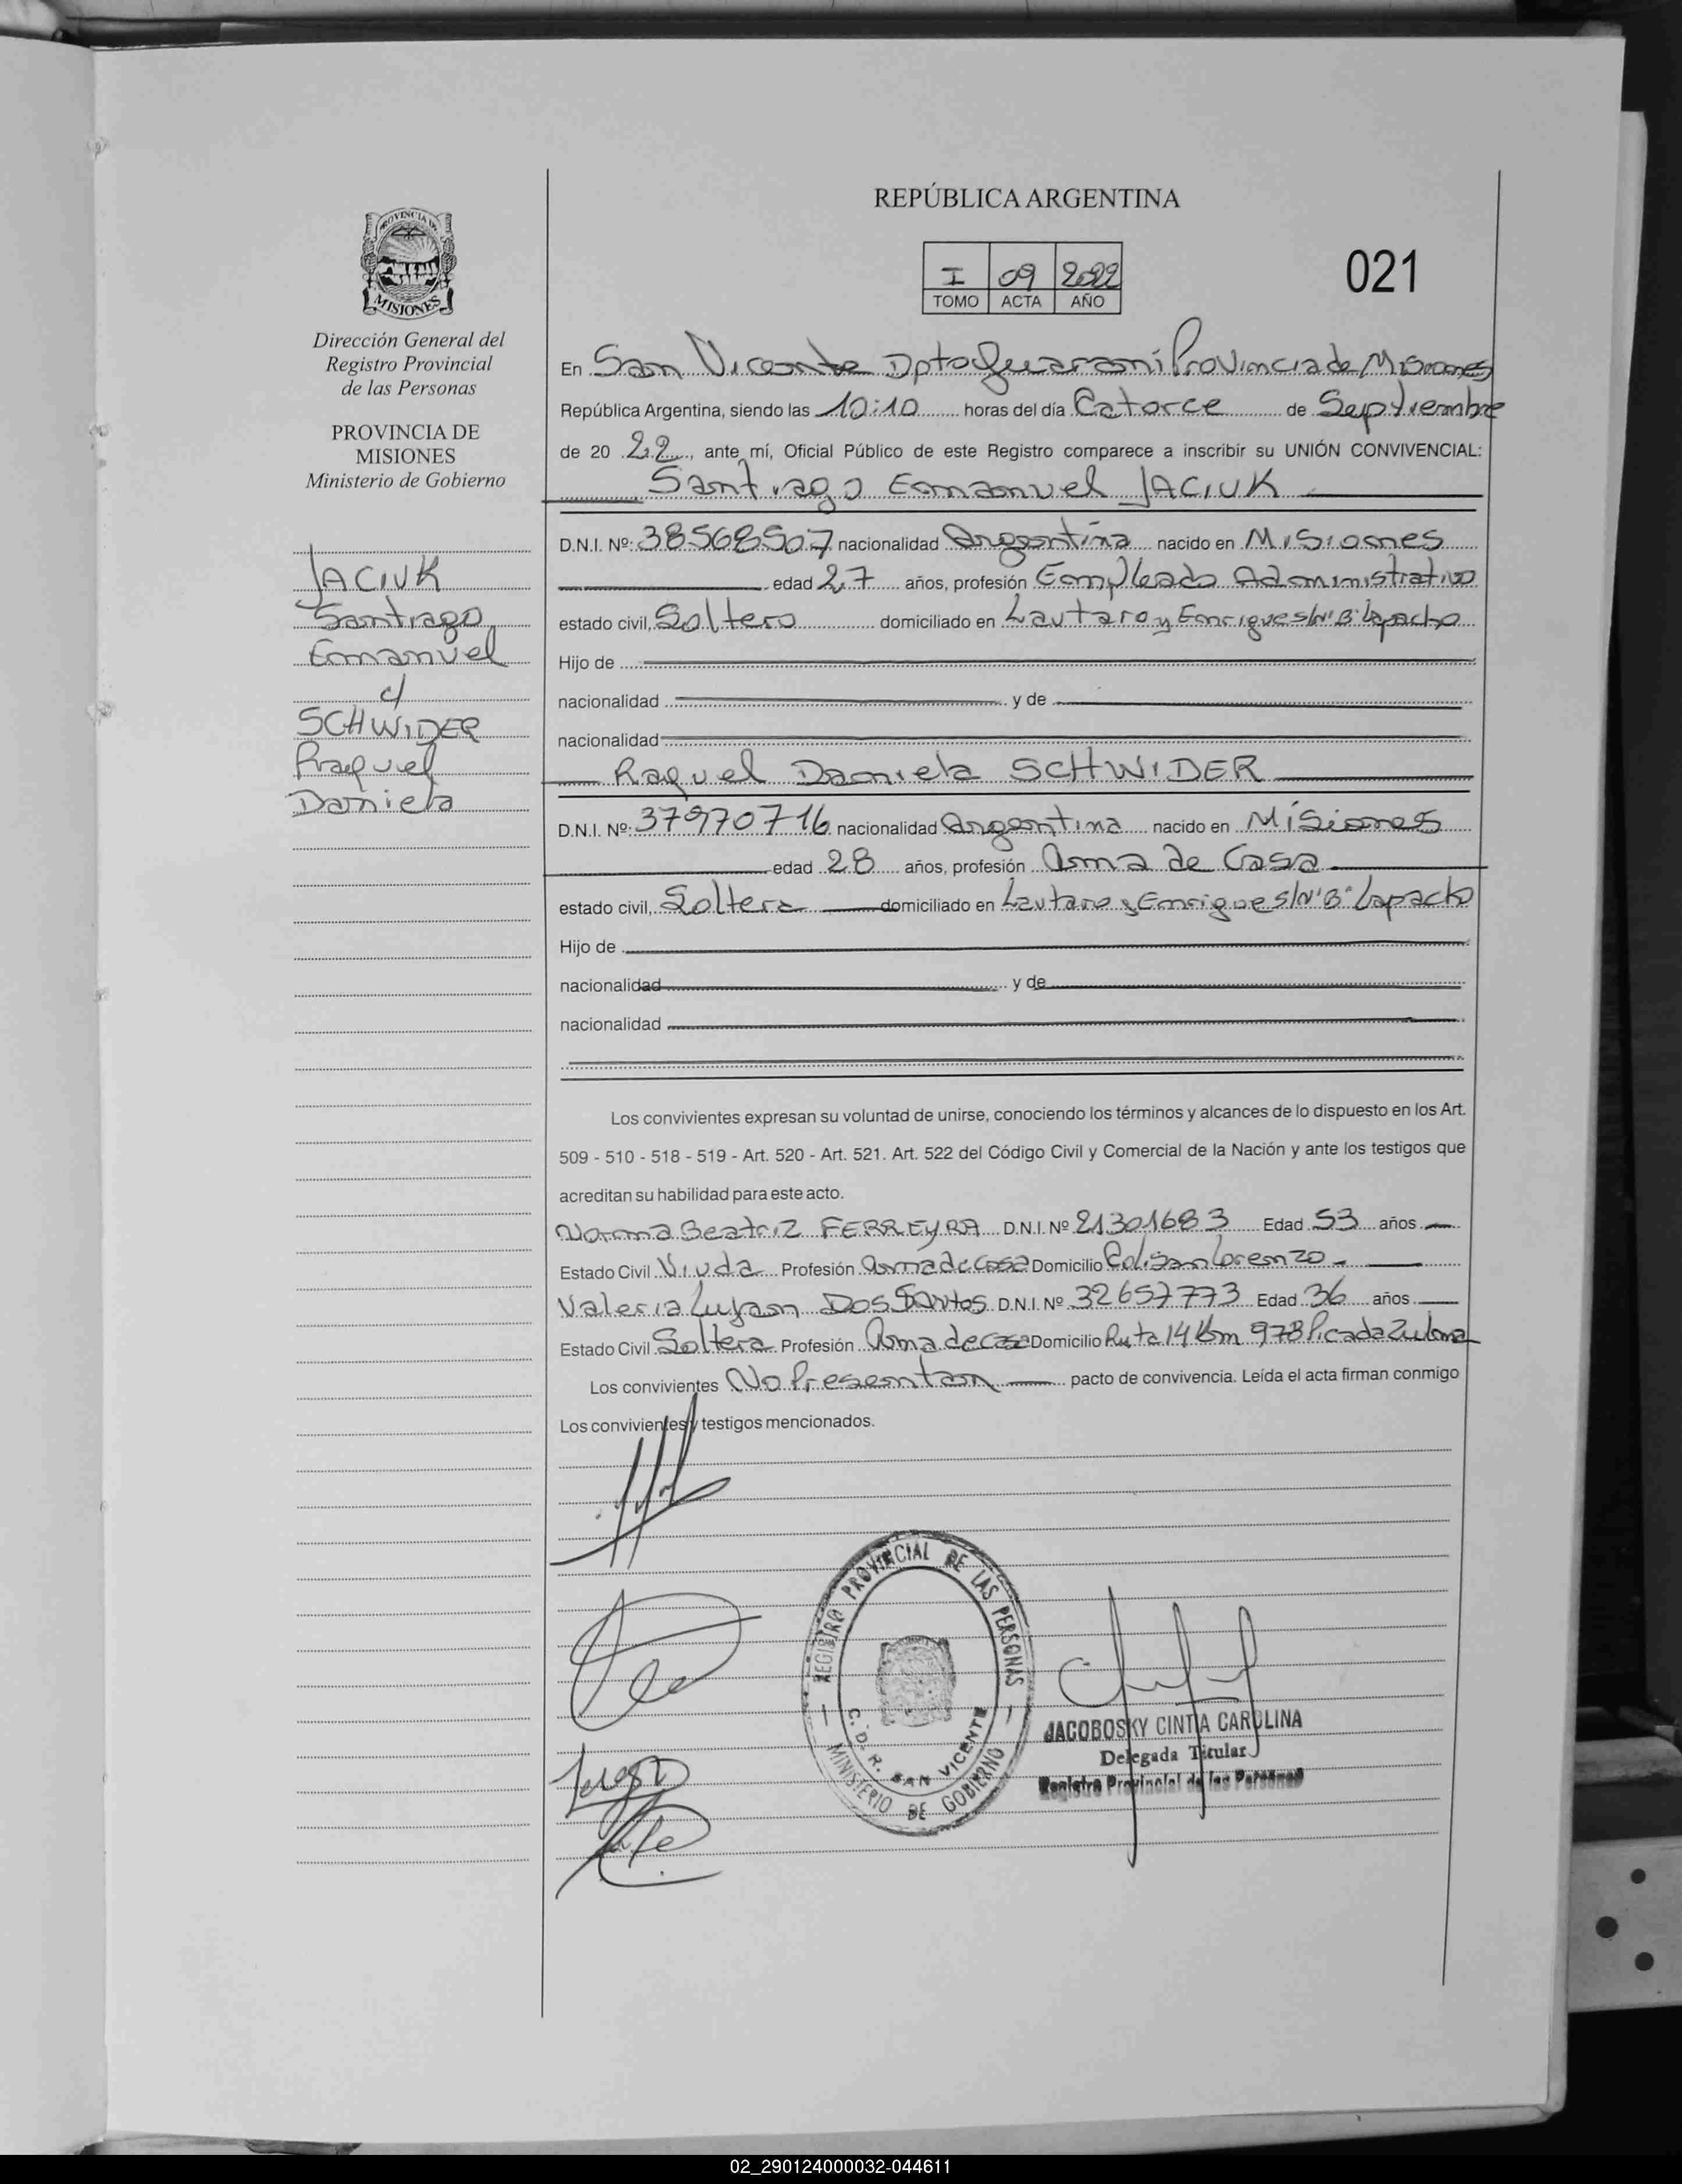 REPÚBLICA ARGENTINA
PROVINCIA DE
MISIONES
I 09 2022
TOMO ACTA AÑO
021
Dirección General del
Registro Provincial
de las Personas
PROVINCIA DE
MISIONES
Ministerio de Gobierno
JACIUK
Santiago
Emanuel
c/
SCHWIDER
Raquel
Daniela
En San Vicente Dpto Guaraní Provincia de Misiones
República Argentina, siendo las 10:10 horas del día Catorce de Septiembre
de 20 22, ante mí, Oficial Público de este Registro comparece a inscribir su UNIÓN CONVIVENCIAL:
Santiago Emanuel JACIUK
D.N.I. Nº: 38568507 nacionalidad Argentina nacido en Misiones
edad 27 años, profesión Empleado Administrativo
estado civil, Soltero domiciliado en Lautaro y Enrique s/Nº Bº Lapacho
Hijo de
nacionalidad y de
nacionalidad
Raquel Daniela SCHWIDER
D.N.I. Nº: 37970716 nacionalidad Argentina nacido en Misiones
edad 28 años, profesión Ama de Casa
estado civil, Soltera domiciliado en Lautaro y Enrique s/Nº Bº Lapacho
Hijo de
nacionalidad y de
nacionalidad
Los convivientes expresan su voluntad de unirse, conociendo los términos y alcances de lo dispuesto en los Art.
509 - 510 - 518 - 519 - Art. 520 - Art. 521. Art. 522 del Código Civil y Comercial de la Nación y ante los testigos que
acreditan su habilidad para este acto.
Norma Beatriz FERREYRA D.N.I. Nº 21301683 Edad 53 años
Estado Civil Viuda Profesión Ama de Casa Domicilio Col. San Lorenzo
Valeria Lujan Dos Santos D.N.I. Nº 32657773 Edad 36 años
Estado Civil Soltera Profesión Ama de Casa Domicilio Ruta 14 Km 978 Picada Zulma
Los convivientes No Presentan pacto de convivencia. Leída el acta firman conmigo
Los convivientes y testigos mencionados.
REGISTRO PROVINCIAL DE LAS PERSONAS
C. D. R. SAN VICENTE
MINISTERIO DE GOBIERNO
JACOBOSKY CINTIA CAROLINA
Delegada Titular
Registro Provincial de las Personas
02_290124000032-044611